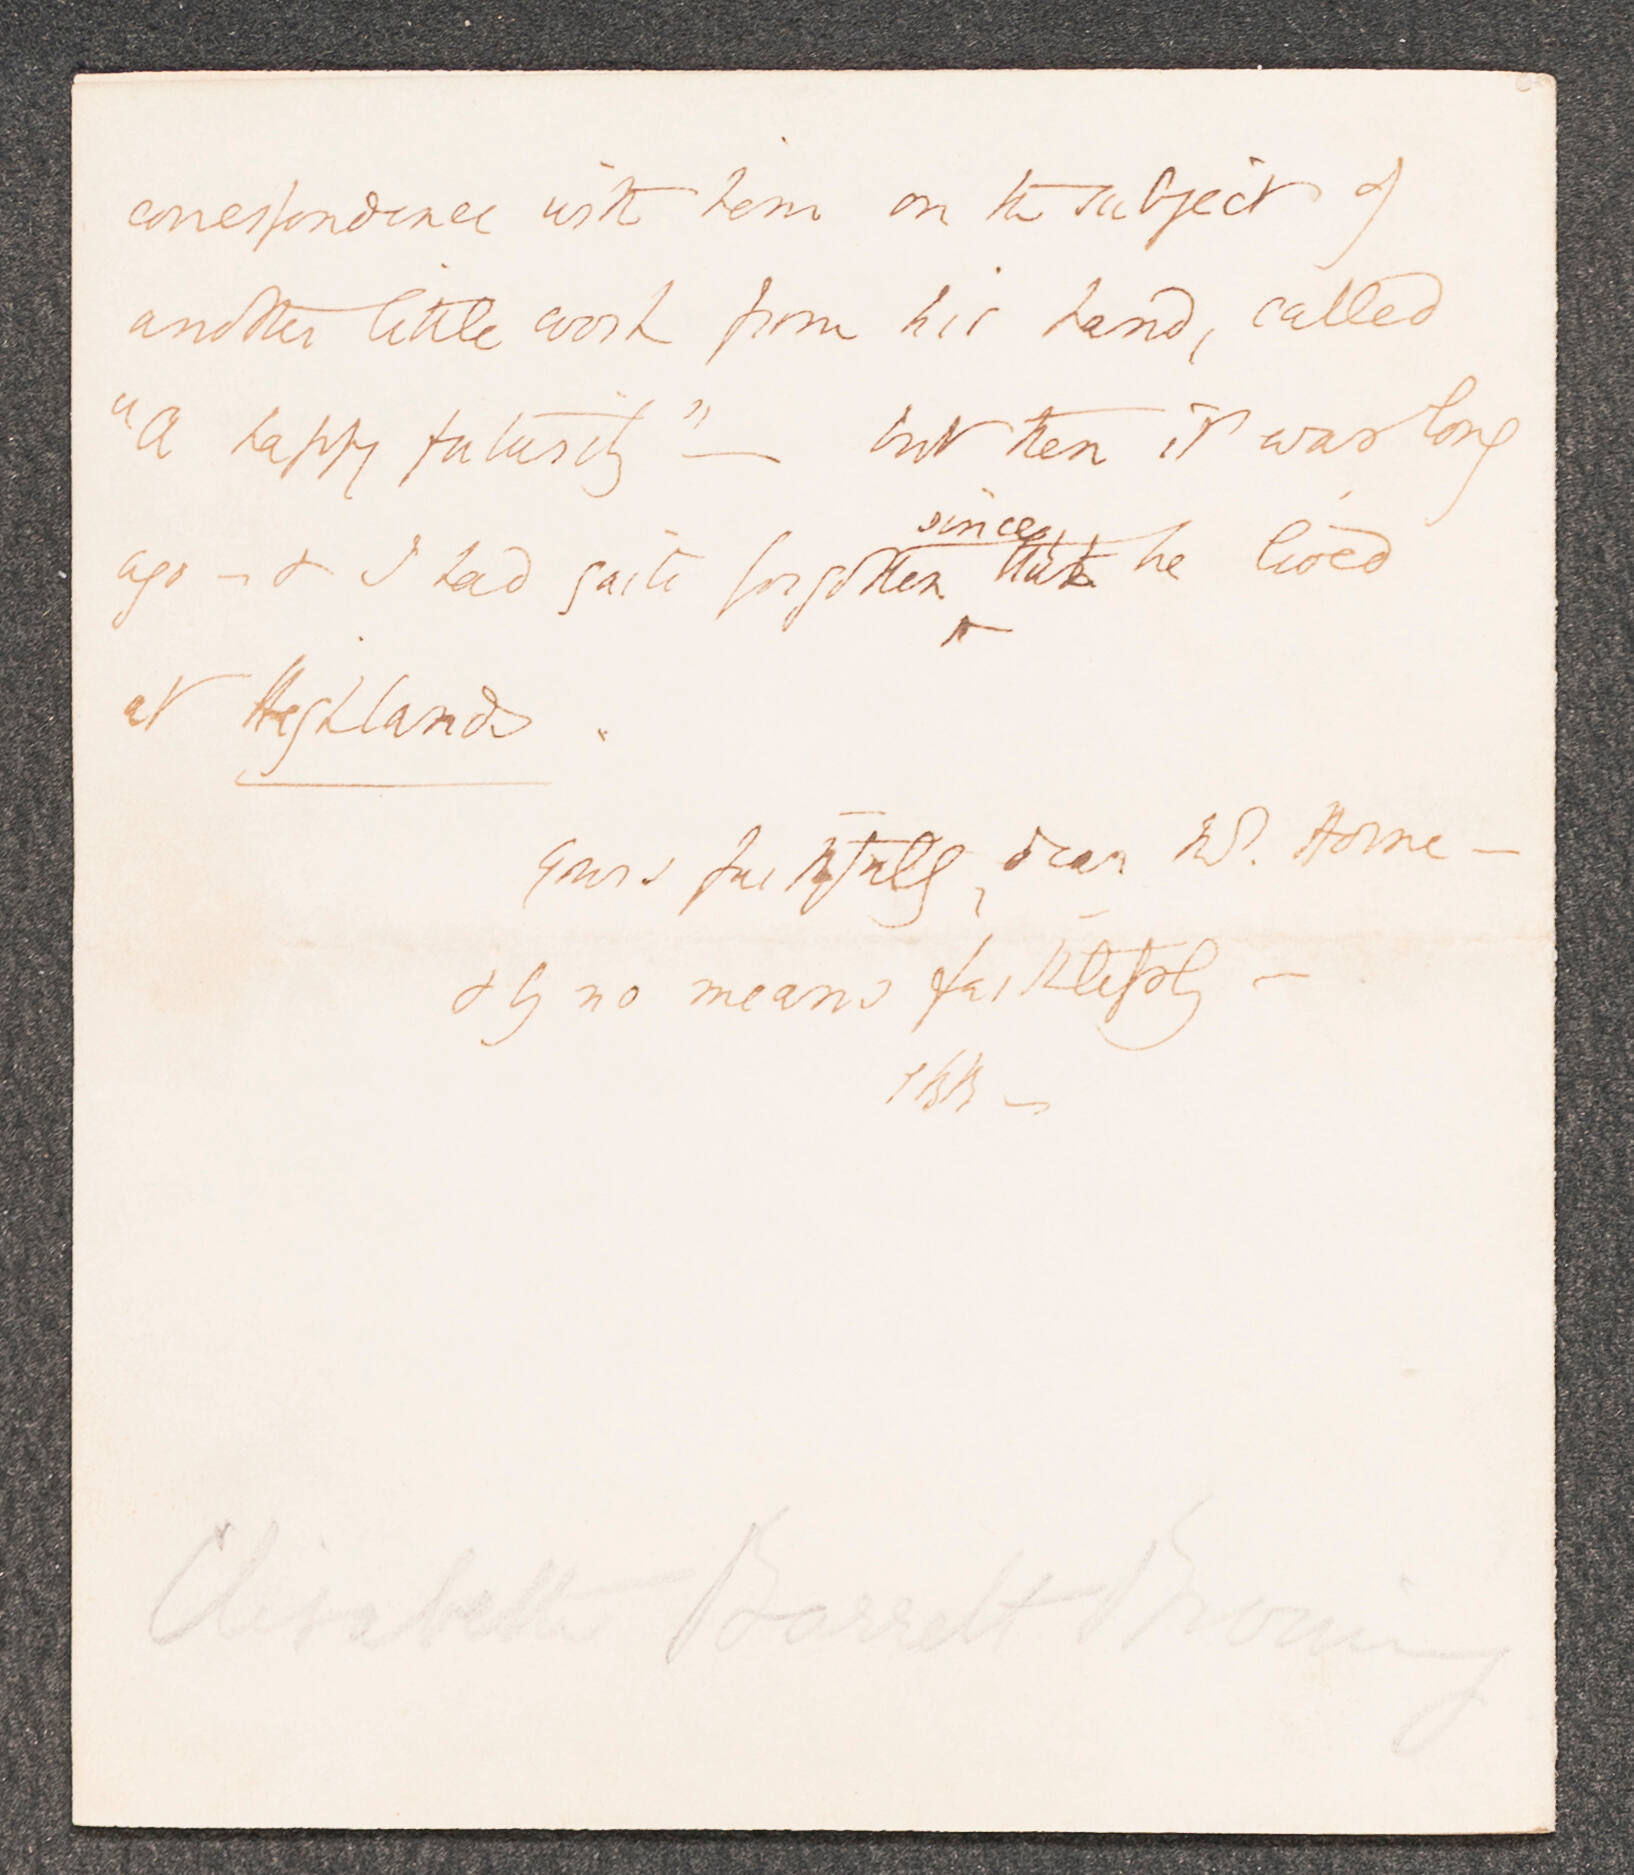 correspondence with him on the subject of
another little work from his hand, called
"A happy futurity" — but then it was long
since,
ago – & I had quite forgotten that he lived
at Highlands.
Yours faithfully, dear Mr. Horne –
& by no means faithlessly –
EBB –
Elisabeth Barrett Browning